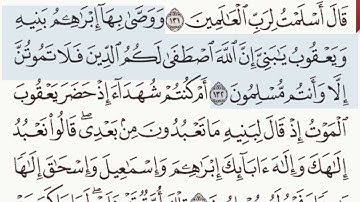 قَالَ أَسْلَمْتُ لِرَبِّ ٱلْعَٰلَمِينَ ١٣١ وَوَصَّىٰ بِهَآ إِبْرَٰهِـۧمُ بَنِيهِ
وَيَعْقُوبُ يَٰبَنِىَّ إِنَّ ٱللَّهَ ٱصْطَفَىٰ لَكُمُ ٱلدِّينَ فَلَا تَمُوتُنَّ
إِلَّا وَأَنتُم مُّسْلِمُونَ ١٣٢ أَمْ كُنتُمْ شُهَدَآءَ إِذْ حَضَرَ يَعْقُوبَ
ٱلْمَوْتُ إِذْ قَالَ لِبَنِيهِ مَا تَعْبُدُونَ مِنۢ بَعْدِى ۖ قَالُوا۟ نَعْبُدُ
إِلَٰهَكَ وَإِلَٰهَ ءَابَآئِكَ إِبْرَٰهِـۧمَ وَإِسْمَٰعِيلَ وَإِسْحَٰقَ إِلَٰهًا